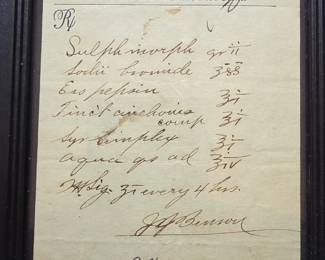 ℞
Sulph morph gr ii
Sodii bromide ʒss
Ess pepsin ʒi
Tinct cinchonia
comp ʒi
Syr Simplex ʒi
aqua qs ad ʒiv
Sig ʒi every 4 hrs.
Benson